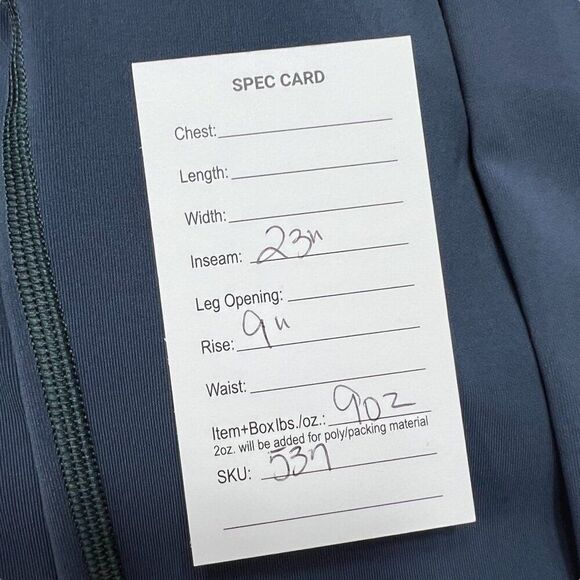 SPEC CARD
Chest:
Length:
Width:
Inseam: 23"
Leg Opening:
Rise: 9"
Waist:
Item+Box lbs./oz.: 9oz
2oz. will be added for poly/packing material
SKU: